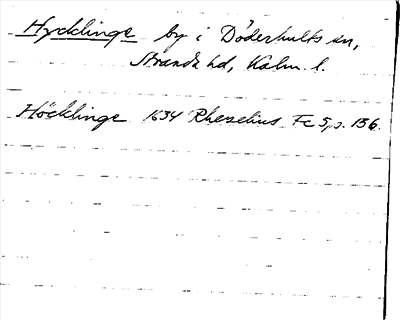 Hycklinge by i Döderhults sn,
Stranda hd, Kalm. l.
Höcklinge 1634 Rhezelius Fc 5, s. 136.